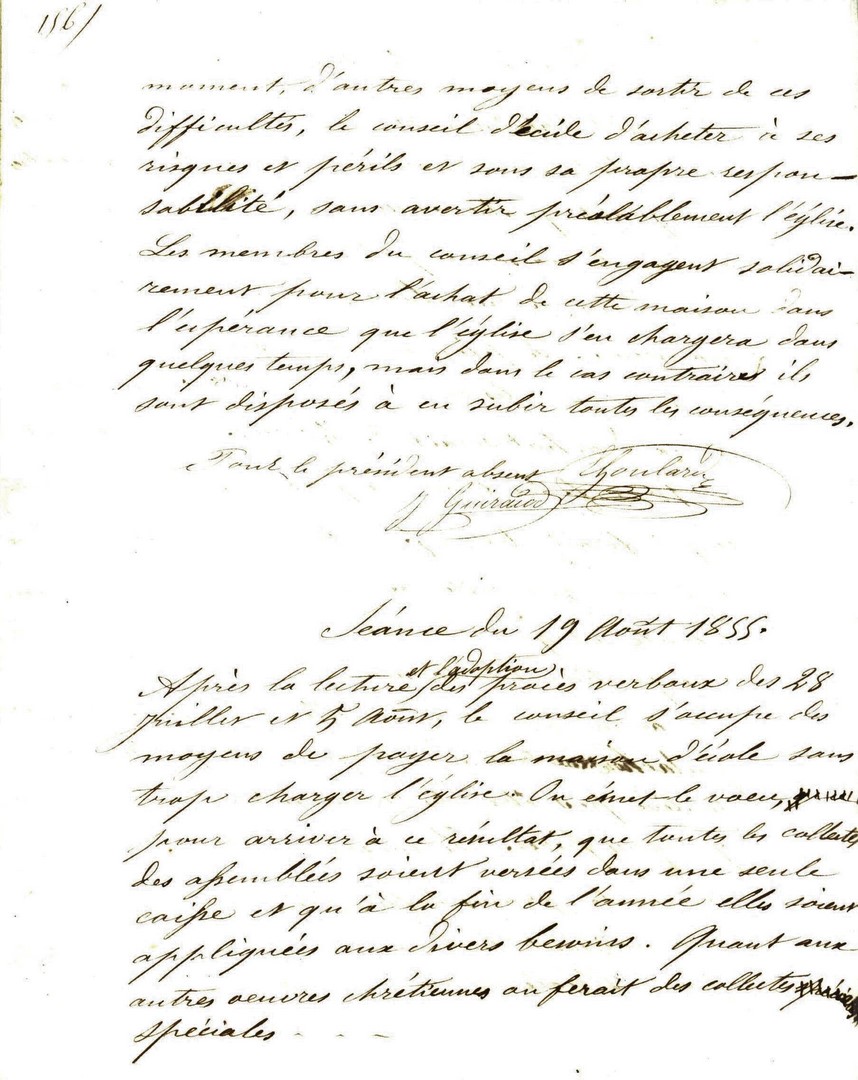 156/
moment, d'autres moyens de sortir de ces
difficultés, le conseil décide d'acheter à ses
risques et périls et sous sa propre respon-
sabilité, sans avertir préalablement l'église.
Les membres du conseil s'engagent solidai-
rement pour l'achat de cette maison dans
l'espérance que l'église s'en chargera dans
quelques temps, mais dans le cas contraire ils
sont disposés à en subir toutes les conséquences.
Pour le président absent
J Guiraud
Séance du 19 Août 1855.
et l'adoption
Après la lecture des procès verbaux des 28
Juillet et 5 Août, le conseil s'occupe des
moyens de payer la maison d'école sans
trop charger l'église. On émet le voeu,
pour arriver à ce résultat, que toutes les collectes
des assemblées soient versées dans une seule
caisse et qu'à la fin de l'année elles soient
appliquées aux divers besoins. Quant aux
autres oeuvres chrétiennes on ferait des collectes
spéciales - - - -